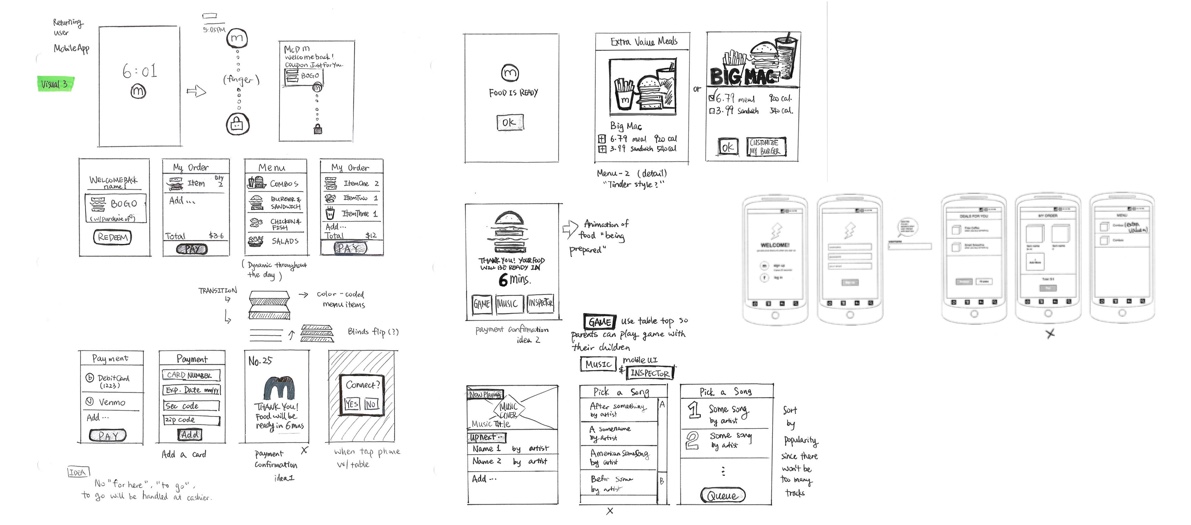 Returning
user
Mobile App
Visual 3
6:01
m
5:05PM
m
(finger)
McD m
welcome back!
Coupon Just for You
BOGO
m
WELCOME BACK
name!
BOGO
REDEEM
My Order
Item
Qty
2
Add...
Total $3.6
PAY
Menu
COMBOS
BURGER &
SANDWICH
CHICKEN &
FISH
SALADS
My Order
Item One 2
Item Two 1
Item Three 1
Add...
Total $12
PAY
(Dynamic throughout
the day)
TRANSITION
color-coded
menu items
Blinds flip (?)
Payment
Debit Card
(1223)
Venmo
Add...
PAY
Payment
CARD NUMBER
Exp. Date mm/yy
Sec code
zip code
Add
Add a card
No. 25
THANK YOU!
Food will be
ready in 6 mins
payment
confirmation
idea 1
X
Connect?
YES NO
when tap phone
w/ table
IDEA
No "for here", "to go".
to go will be handled at cashier.
m
FOOD IS READY
OK
Extra Value Meals
m
Big Mac
6.79 meal 920 cal
3.99 sandwich 540 cal
or
BIG MAC
6.79 meal 920 cal.
3.99 sandwich 540 cal.
OK
CUSTOMIZE
MY BURGER
Menu-2 (detail)
"Tinder style?"
THANK YOU! YOUR FOOD
WILL BE READY IN
6 mins.
GAME MUSIC INSPECTOR
Animation of
food "being
prepared"
payment confirmation
idea 2
GAME use table top so
parents can play game with
their children
MUSIC mobile UI
& INSPECTOR
Now Playing
MUSIC
COVER
Music Title
Up next...
Name 1 by artist
Name 2 by artist
Add...
Pick a Song
A
After something
by artist
A somename
by Artist
American Somesong
by Artist
B
Befor some
by artist
X
Pick a Song
1 Some song
by artist
2 Some song
by artist
Queue
Sort
by
popularity
since there
won't be
too many
tracks
WELCOME!
sign up
log in
DEALS FOR YOU
MY ORDER
X
MENU